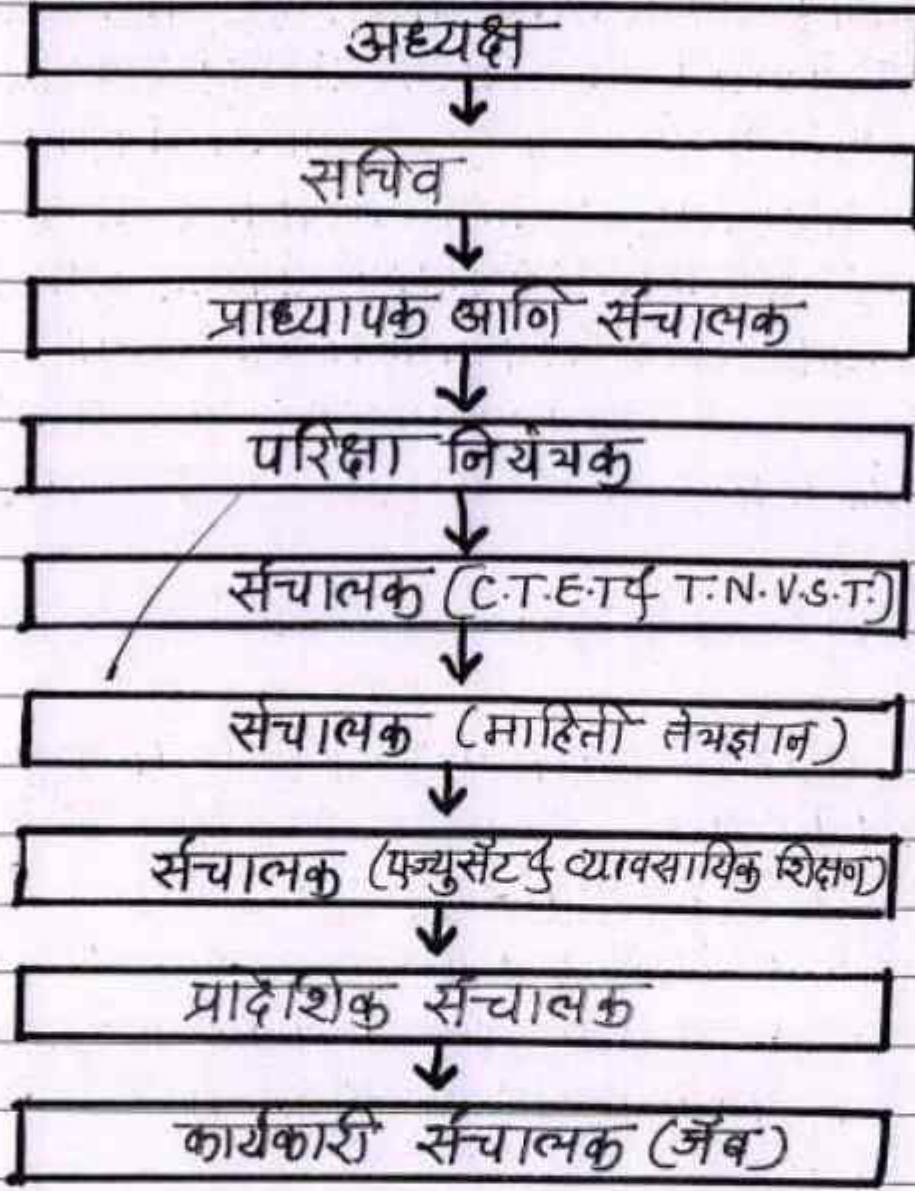 अध्यक्ष
सचिव
प्राध्यापक आणि संचालक
परिक्षा नियंत्रक
संचालक (C.T.E.T & T.N.V.S.T.)
संचालक (माहिती तंत्रज्ञान)
संचालक (एज्युसॅट & व्यावसायिक शिक्षण)
प्रादेशिक संचालक
कार्यकारी संचालक (जॅब)